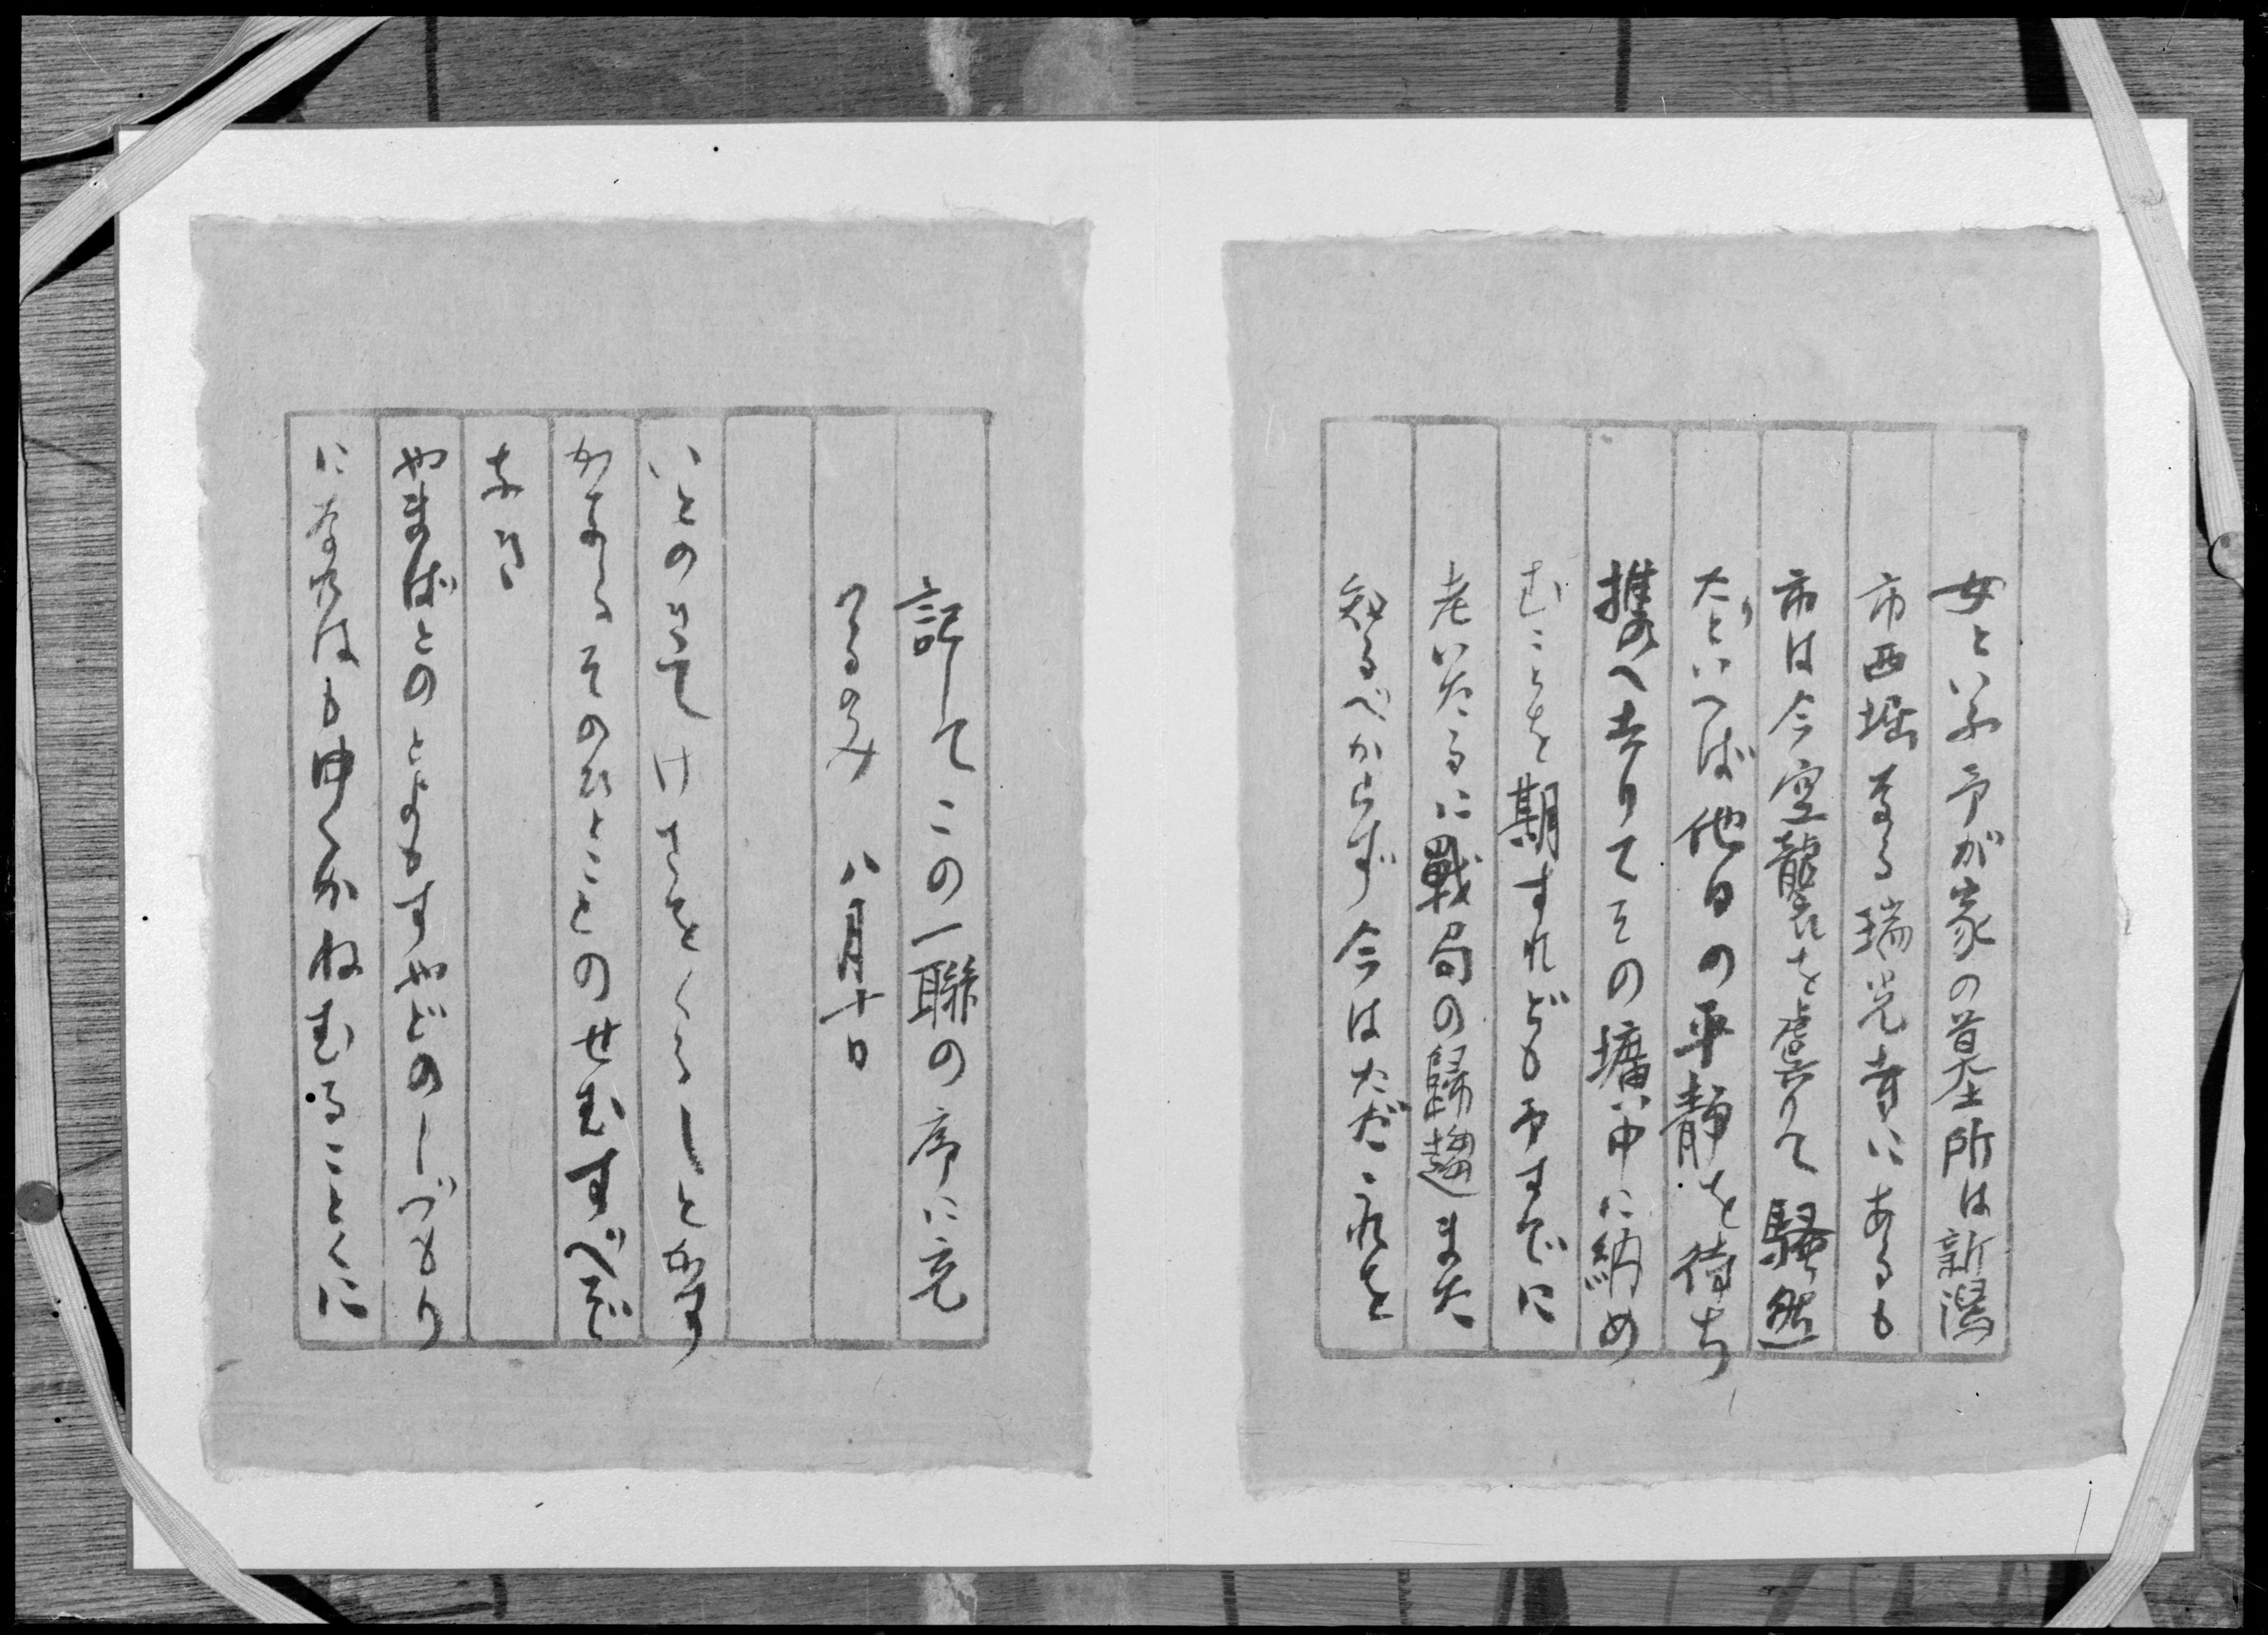 女といふ予が家の墓所は新潟
市西堀なる瑞光寺にあるも
市は今空襲を虞りて騒然
たりといへば他日の平静を待ち
携へ去りてその壙中に納め
むことを期すれども予すでに
老いたるに戰局の歸趨また
知るべからず今はただこれを
記してこの一聯の序に充
つるのみ　八月十日
いとのきてけさをくるしとかす
かなるそのひとことのせむすべぞ
なき
やまばとのとよもすやどのしづもり
になれはもゆくかねむることくに